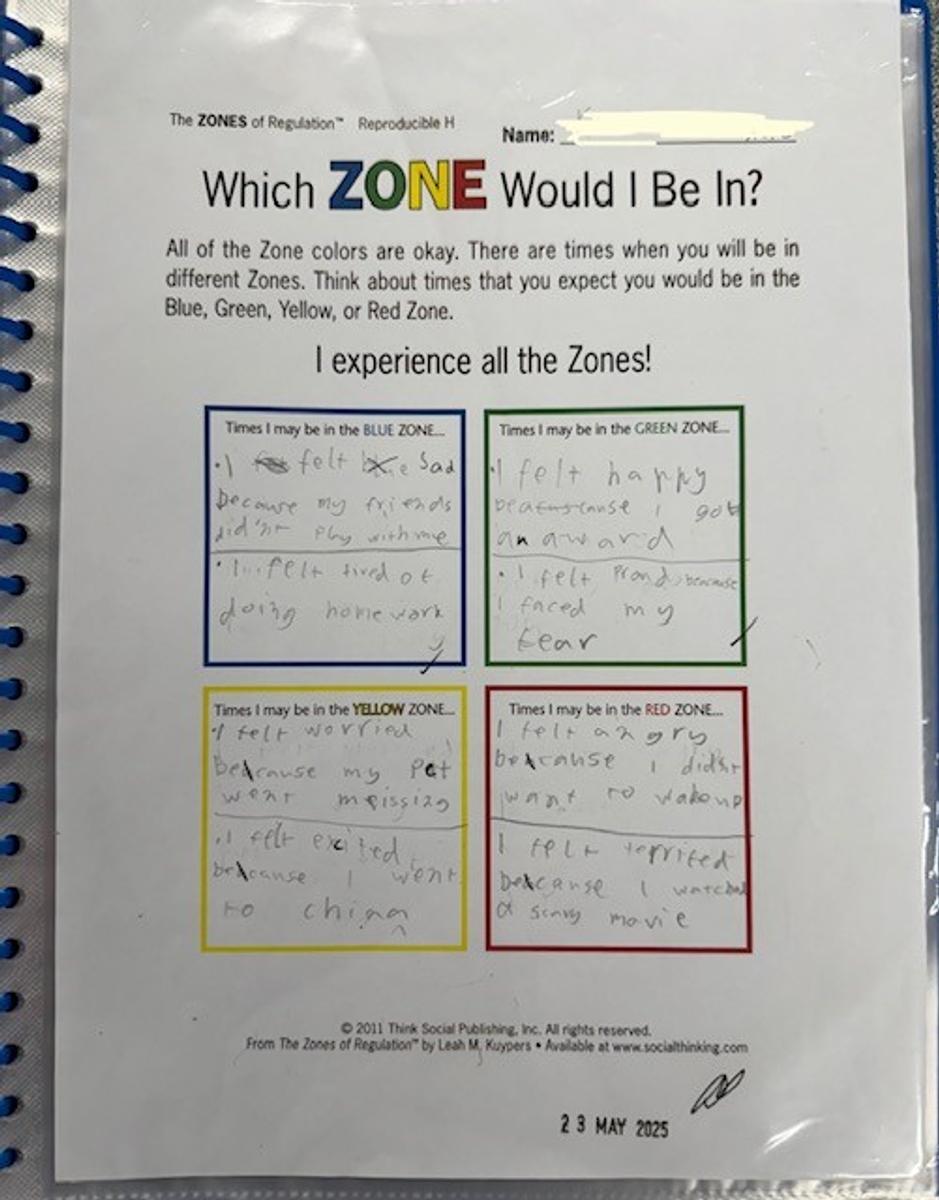 The ZONES of Regulation™ Reproducible H
Name:
Which ZONE Would I Be In?
All of the Zone colors are okay. There are times when you will be in
different Zones. Think about times that you expect you would be in the
Blue, Green, Yellow, or Red Zone.
I experience all the Zones!
Times I may be in the BLUE ZONE...
• I felt Sad
because my friends
did'nt play with me
• I felt tired of
doing homework
Times I may be in the GREEN ZONE...
• I felt happy
because I got
an award
• I felt Proud beacause
I faced my
fear
Times I may be in the YELLOW ZONE...
• I felt worried
beacause my Pet
went meissing
• I felt exited
beacause I went
to china
Times I may be in the RED ZONE...
I felt angry
beacause I didnt
want to wakeup
I felt terrified
beacause I watched
a scary movie
© 2011 Think Social Publishing, Inc. All rights reserved.
From The Zones of Regulation™ by Leah M. Kuypers • Available at www.socialthinking.com
23 MAY 2025